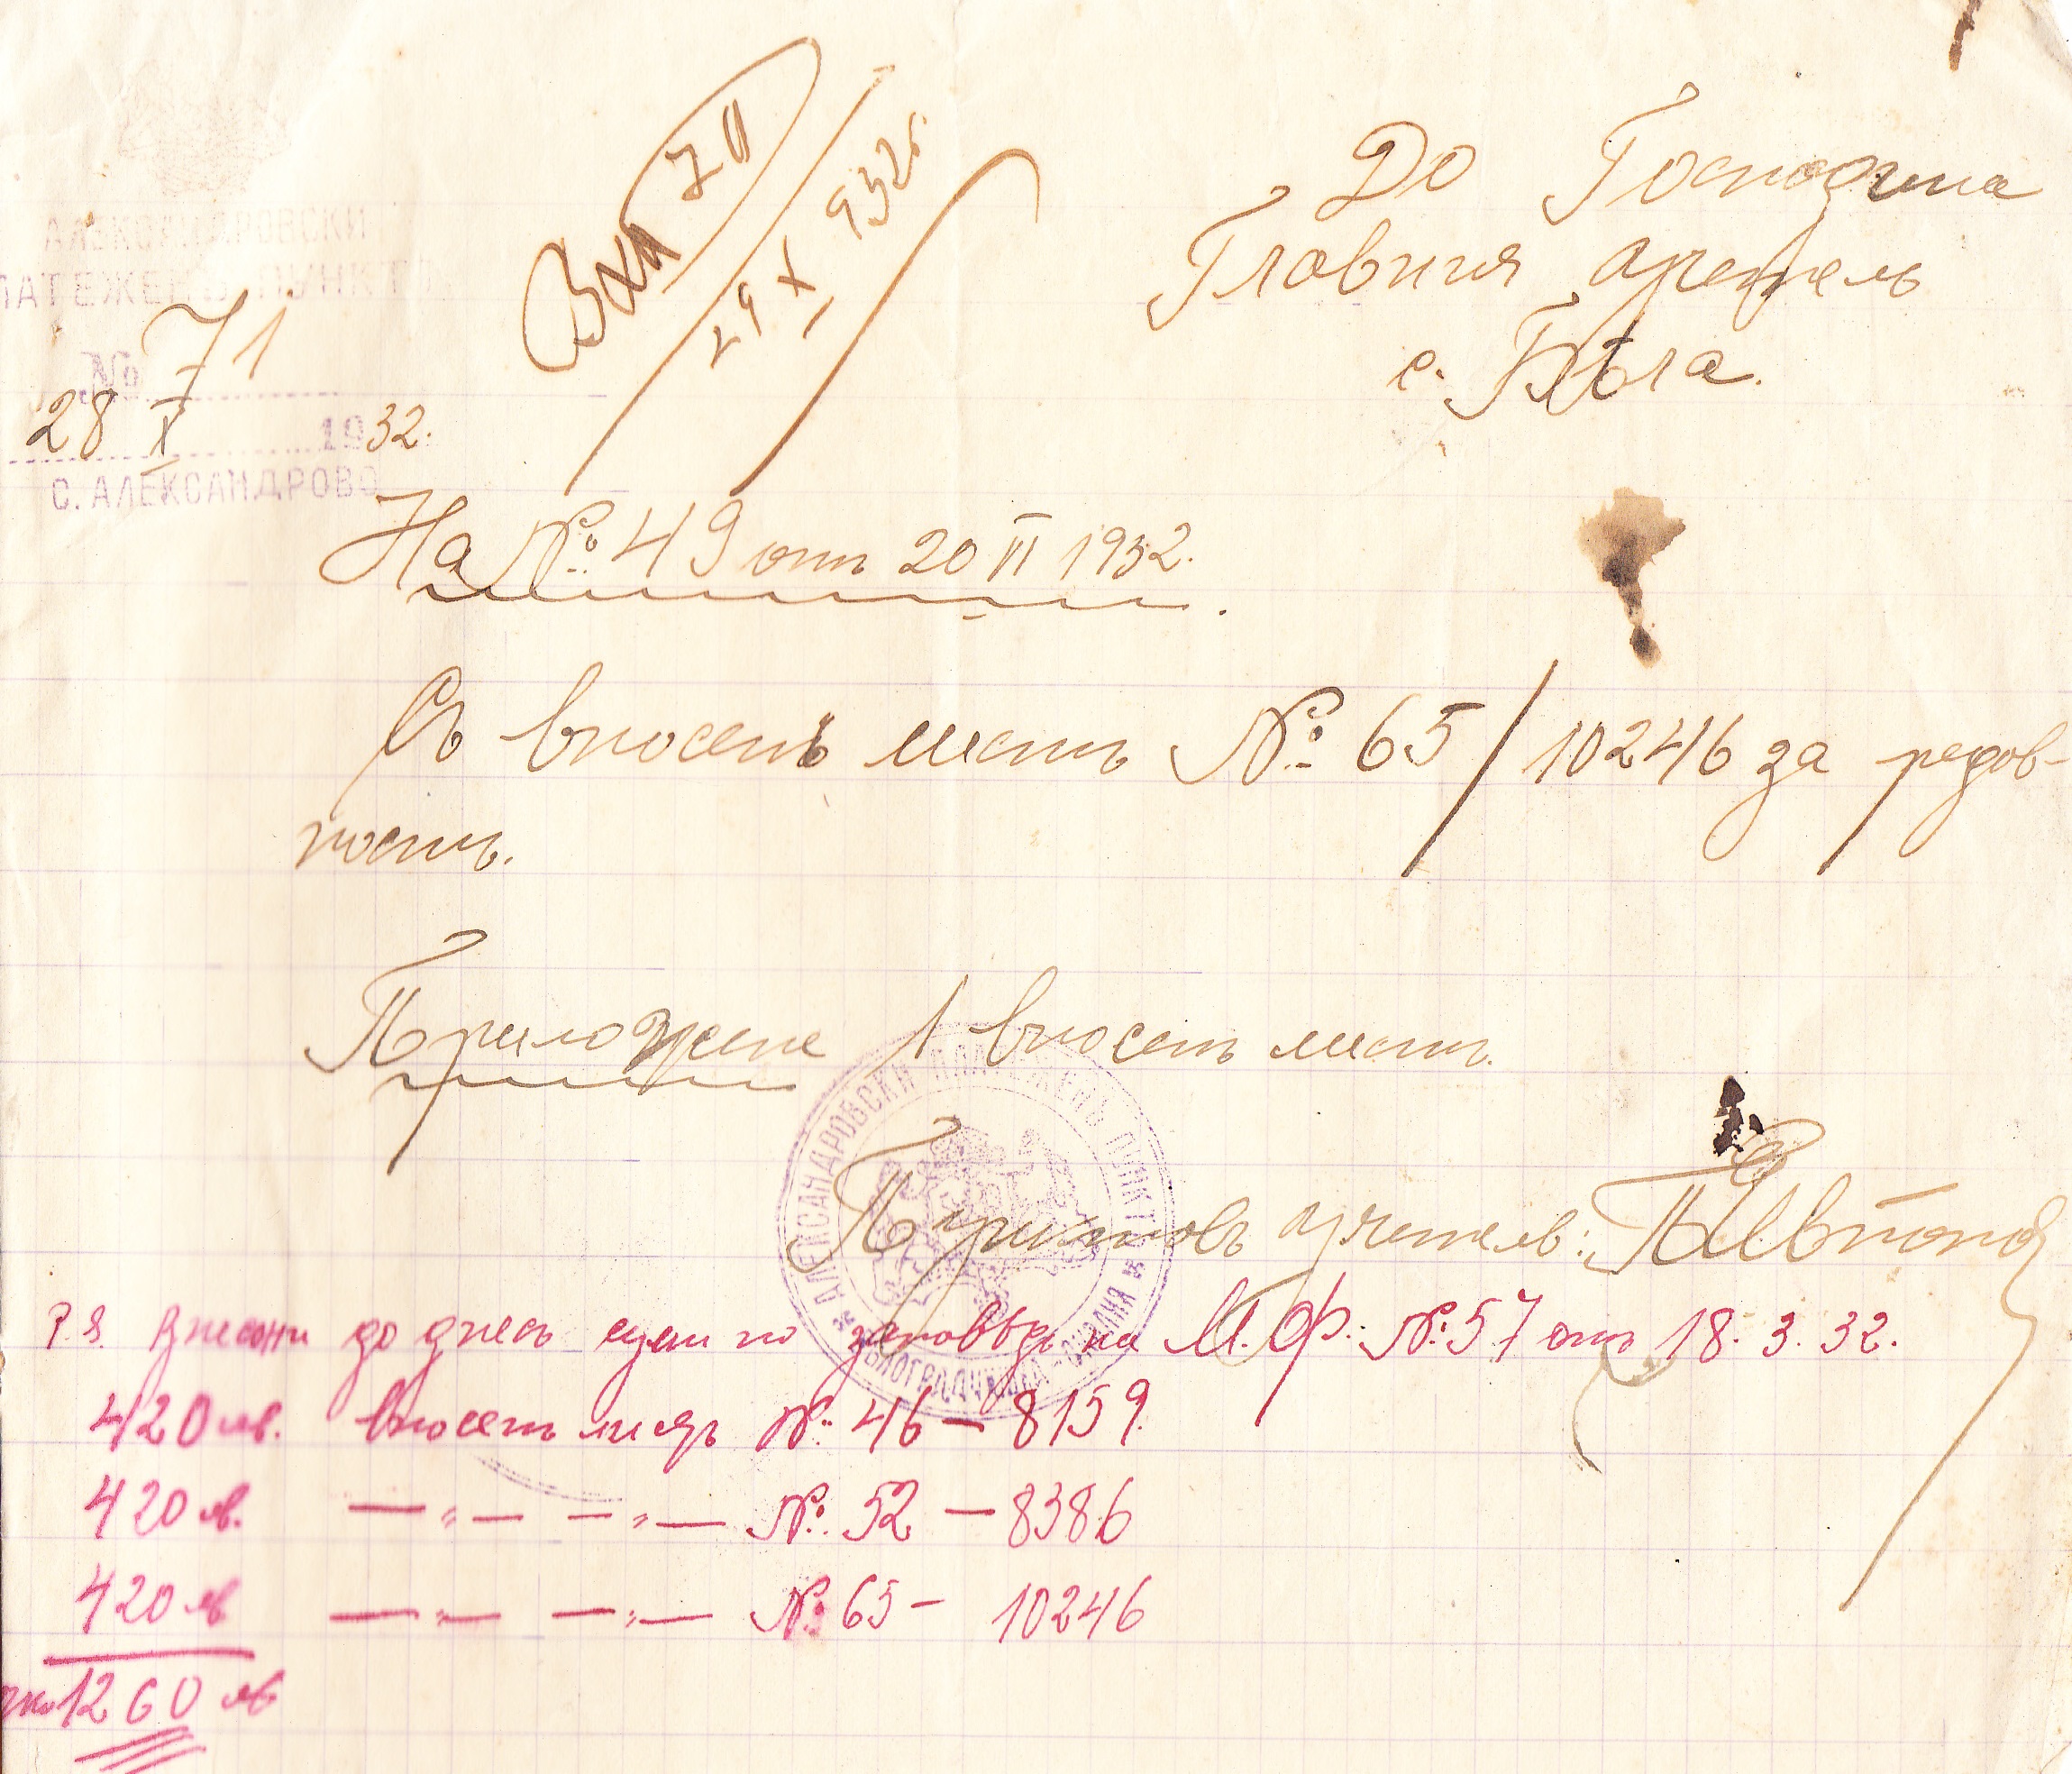 До Господина
Главния учитель
с. Бѣла.
Вхд 70
29 X 932г.
АЛЕКСАНДРОВСКИ
ПЛАТЕЖЕНЪ ПУНКТЪ
№ 71
28 X 1932.
С. АЛЕКСАНДРОВО
На № 49 отъ 20 VI 1932.
Съ вносенъ листъ № 65/10246 за редов-
ность.
Приложение 1 вносенъ листъ.
АЛЕКСАНДРОВСКИ ПЛАТЕЖЕНЪ ПУНКТЪ
БѢЛОГРАДЧИШКА ОКОЛИЯ
учитель:
P.S. Внесени до днесь суми по заповѣдь на М.Ф. № 57 отъ 18.3.32.
420 лв. вносенъ листъ № 46 — 8159.
420 лв. —"— —"— № 52 — 8386
420 лв —"— —"— № 65 — 10246
1260 лв